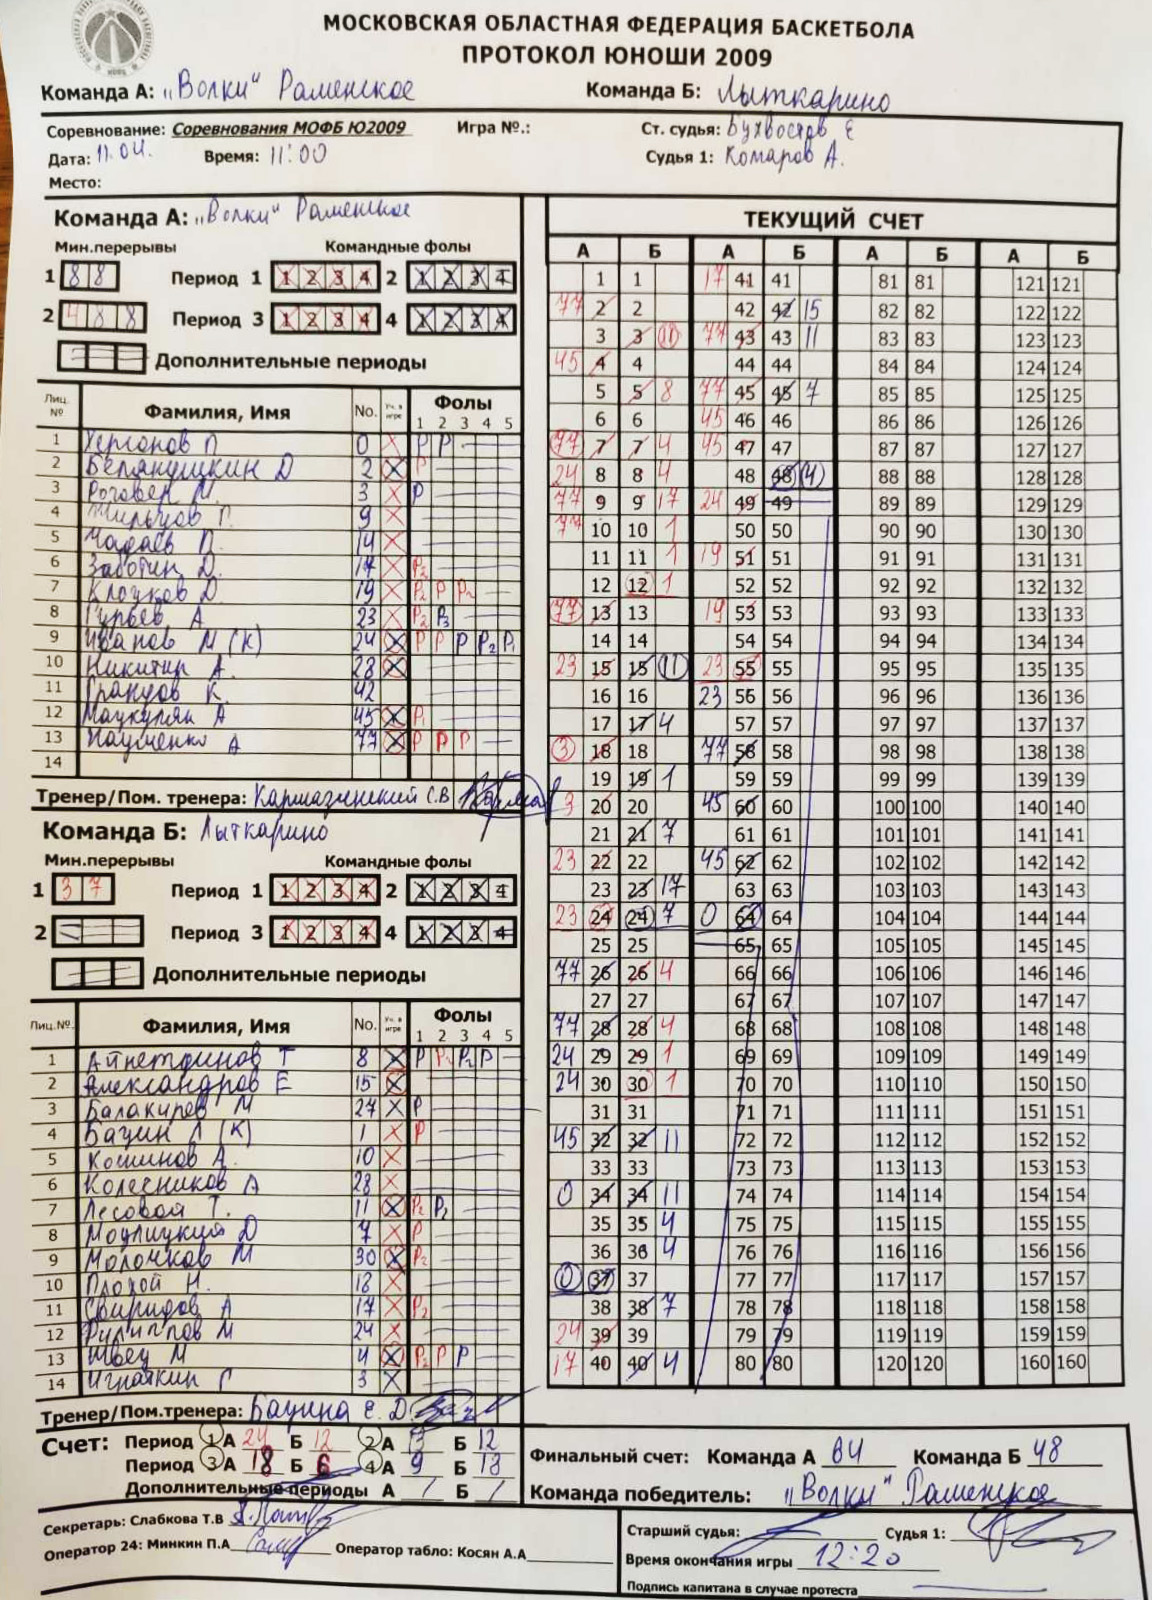 МОСКОВСКАЯ ОБЛАСТНАЯ ФЕДЕРАЦИЯ БАСКЕТБОЛА
ПРОТОКОЛ ЮНОШИ 2009
Команда А: "Волки" Раменское Команда Б: Лыткарино
Соревнование: Соревнования МОФБ Ю2009 Игра №.: Ст. судья: Бухвостов Е
Дата: 11.04. Время: 11:00 Судья 1: Комаров А.
Место:
Команда А: "Волки" Раменское
Мин.перерывы Командные фолы
1 8 8 Период 1 1 2 3 4 2 1 2 3 4
2 4 8 8 Период 3 1 2 3 4 4 1 2 3 4
Дополнительные периоды
Лиц. № Фамилия, Имя No. Уч. в игре Фолы 1 2 3 4 5
1 П 0 X P P
2 Белянушкин Д 2 X P
3 Роговец М. 3 X P
4 9 X
5 Чадаев П. 14 X
6 Заботин Д. 17 X P2
7 Клочков Д. 19 X P2 P P2
8 Гурьев А 23 X P2 P3
9 Иванов М (К) 24 X P P P P2 P1
10 Никитин А. 28 X
11 К. 42
12 А 45 X P1
13 Науменко А 77 X P P P
14
Тренер/Пом. тренера: С.В
Команда Б: Лыткарино
Мин.перерывы Командные фолы
1 3 7 Период 1 1 2 3 4 2 1 2 3 4
2 Период 3 1 2 3 4 4 1 2 3 4
Дополнительные периоды
Лиц.№. Фамилия, Имя No. Уч. в игре Фолы 1 2 3 4 5
1 Айнетдинов Т 8 X P P P2 P
2 Александров Е 15 X
3 Балакирев М 27 X P
4 Бацин (К) 1 X P
5 Кошинов А. 10 X
6 Колесников А 28 X
7 Лесовой Т. 11 X P2 P2
8 Модлицкий Д 7 X P
9 Молочков М 30 X P2
10 Плохой Н. 18 X
11 Свиридов А 17 X P2
12 Филиппов М 24 X
13 Швец М 4 X P2 P P
14 Играйкин Г 3 X
Тренер/Пом.тренера: Бацина Е. Д.
ТЕКУЩИЙ СЧЕТ
А Б А Б А Б А Б
1 1 17 41 41 81 81 121 121
77 2 2 42 42 15 82 82 122 122
3 3 11 77 43 43 11 83 83 123 123
45 4 4 44 44 84 84 124 124
5 5 8 77 45 45 7 85 85 125 125
6 6 45 46 46 86 86 126 126
77 7 7 4 45 47 47 87 87 127 127
24 8 8 4 48 48 4 88 88 128 128
77 9 9 17 24 49 49 89 89 129 129
77 10 10 1 50 50 90 90 130 130
11 11 1 19 51 51 91 91 131 131
12 12 1 52 52 92 92 132 132
77 13 13 19 53 53 93 93 133 133
14 14 54 54 94 94 134 134
23 15 15 11 23 55 55 95 95 135 135
16 16 23 56 56 96 96 136 136
17 17 4 57 57 97 97 137 137
3 18 18 77 58 58 98 98 138 138
19 19 1 59 59 99 99 139 139
3 20 20 45 60 60 100 100 140 140
21 21 7 61 61 101 101 141 141
23 22 22 45 62 62 102 102 142 142
23 23 17 63 63 103 103 143 143
23 24 24 7 0 64 64 104 104 144 144
25 25 65 65 105 105 145 145
77 26 26 4 66 66 106 106 146 146
27 27 67 67 107 107 147 147
77 28 28 4 68 68 108 108 148 148
24 29 29 1 69 69 109 109 149 149
24 30 30 1 70 70 110 110 150 150
31 31 71 71 111 111 151 151
45 32 32 11 72 72 112 112 152 152
33 33 73 73 113 113 153 153
0 34 34 11 74 74 114 114 154 154
35 35 4 75 75 115 115 155 155
36 36 4 76 76 116 116 156 156
0 37 37 77 77 117 117 157 157
38 38 7 78 78 118 118 158 158
24 39 39 79 79 119 119 159 159
17 40 40 4 80 80 120 120 160 160
Счет: Период 1 А 24 Б 12 2 А 13 Б 12
Период 3 А 18 Б 6 4 А 9 Б 18
Дополнительные периоды А / Б /
Финальный счет: Команда А 64 Команда Б 48
Команда победитель: "Волки" Раменское
Секретарь: Слабкова Т.В
Оператор 24: Минкин П.А Оператор табло: Косян А.А
Старший судья: Судья 1:
Время окончания игры 12:20
Подпись капитана в случае протеста